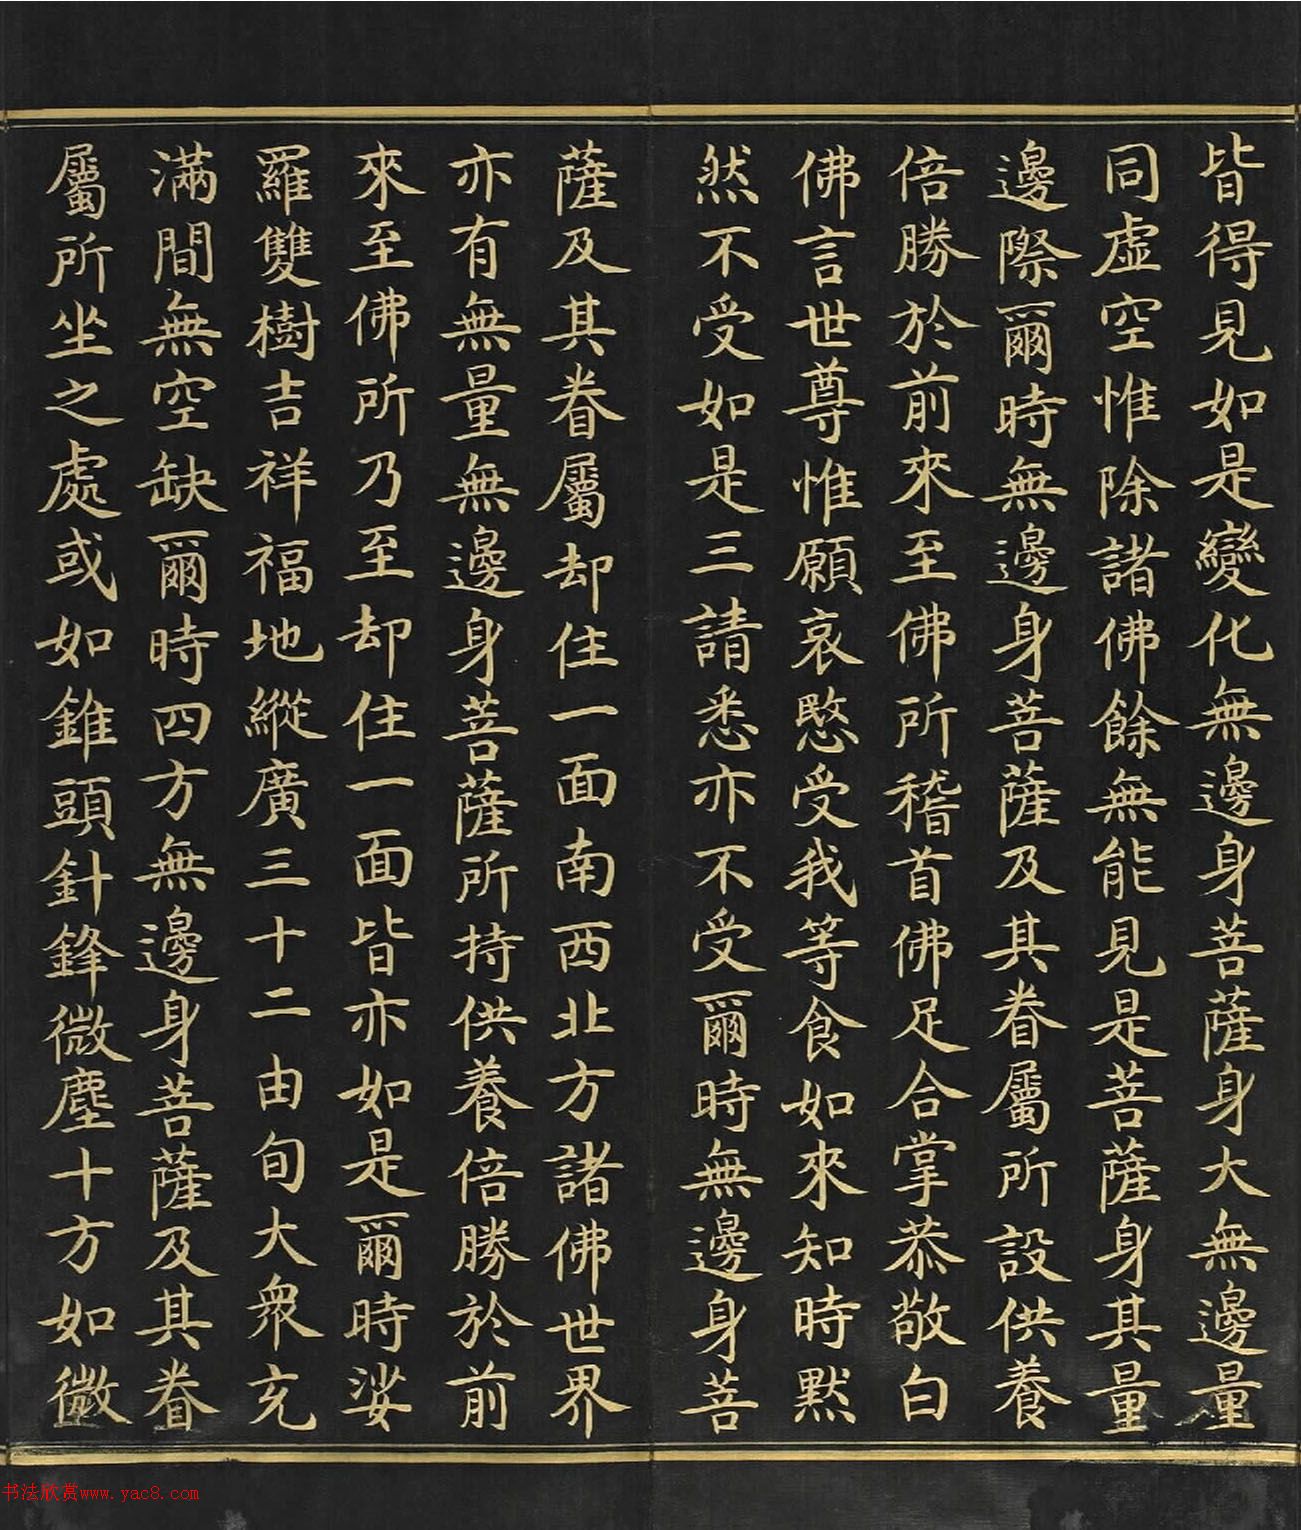 皆得見如是變化無邊身菩薩身大無邊量
同虛空惟除諸佛餘無能見是菩薩身其量
邊際爾時無邊身菩薩及其眷屬所設供養
倍勝於前來至佛所稽首佛足合掌恭敬白
佛言世尊惟願哀愍受我等食如來知時默
然不受如是三請悉亦不受爾時無邊身菩
薩及其眷屬却住一面南西北方諸佛世界
亦有無量無邊身菩薩所持供養倍勝於前
來至佛所乃至却住一面皆亦如是爾時娑
羅雙樹吉祥福地縱廣三十二由旬大衆充
滿間無空缺爾時四方無邊身菩薩及其眷
屬所坐之處或如錐頭針鋒微塵十方如微
书法欣赏www.yac8.com